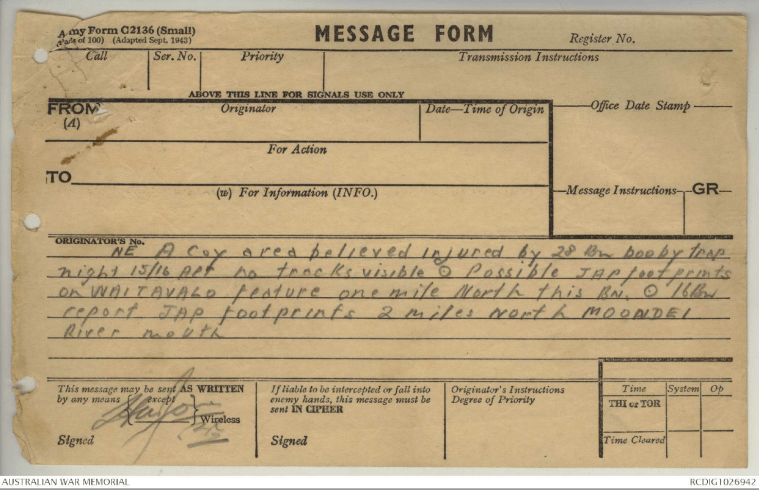 Army Form C2136 (Small)
(Pads of 100) (Adapted Sept. 1943)
MESSAGE FORM
Register No.
Call
Ser. No.
Priority
Transmission Instructions
ABOVE THIS LINE FOR SIGNALS USE ONLY
FROM
(A)
Originator
Date—Time of Origin
Office Date Stamp
For Action
TO
(w) For Information (INFO.)
Message Instructions
GR
ORIGINATOR'S No.
NE A Coy area believed injured by 28 Bn booby trap
night 15/16 Apr no tracks visible ⊙ Possible JAP footprints
on WAITAVALO feature one mile North this BN. ⊙ 16 Bn
report JAP footprints 2 miles North MOONDEI
River mouth
This message may be sent AS WRITTEN
by any means {except
Wireless}
Signed
If liable to be intercepted or fall into
enemy hands, this message must be
sent IN CIPHER
Signed
Originator's Instructions
Degree of Priority
Time
System
Op
THI or TOR
Time Cleared
AUSTRALIAN WAR MEMORIAL
RCDIG1026942